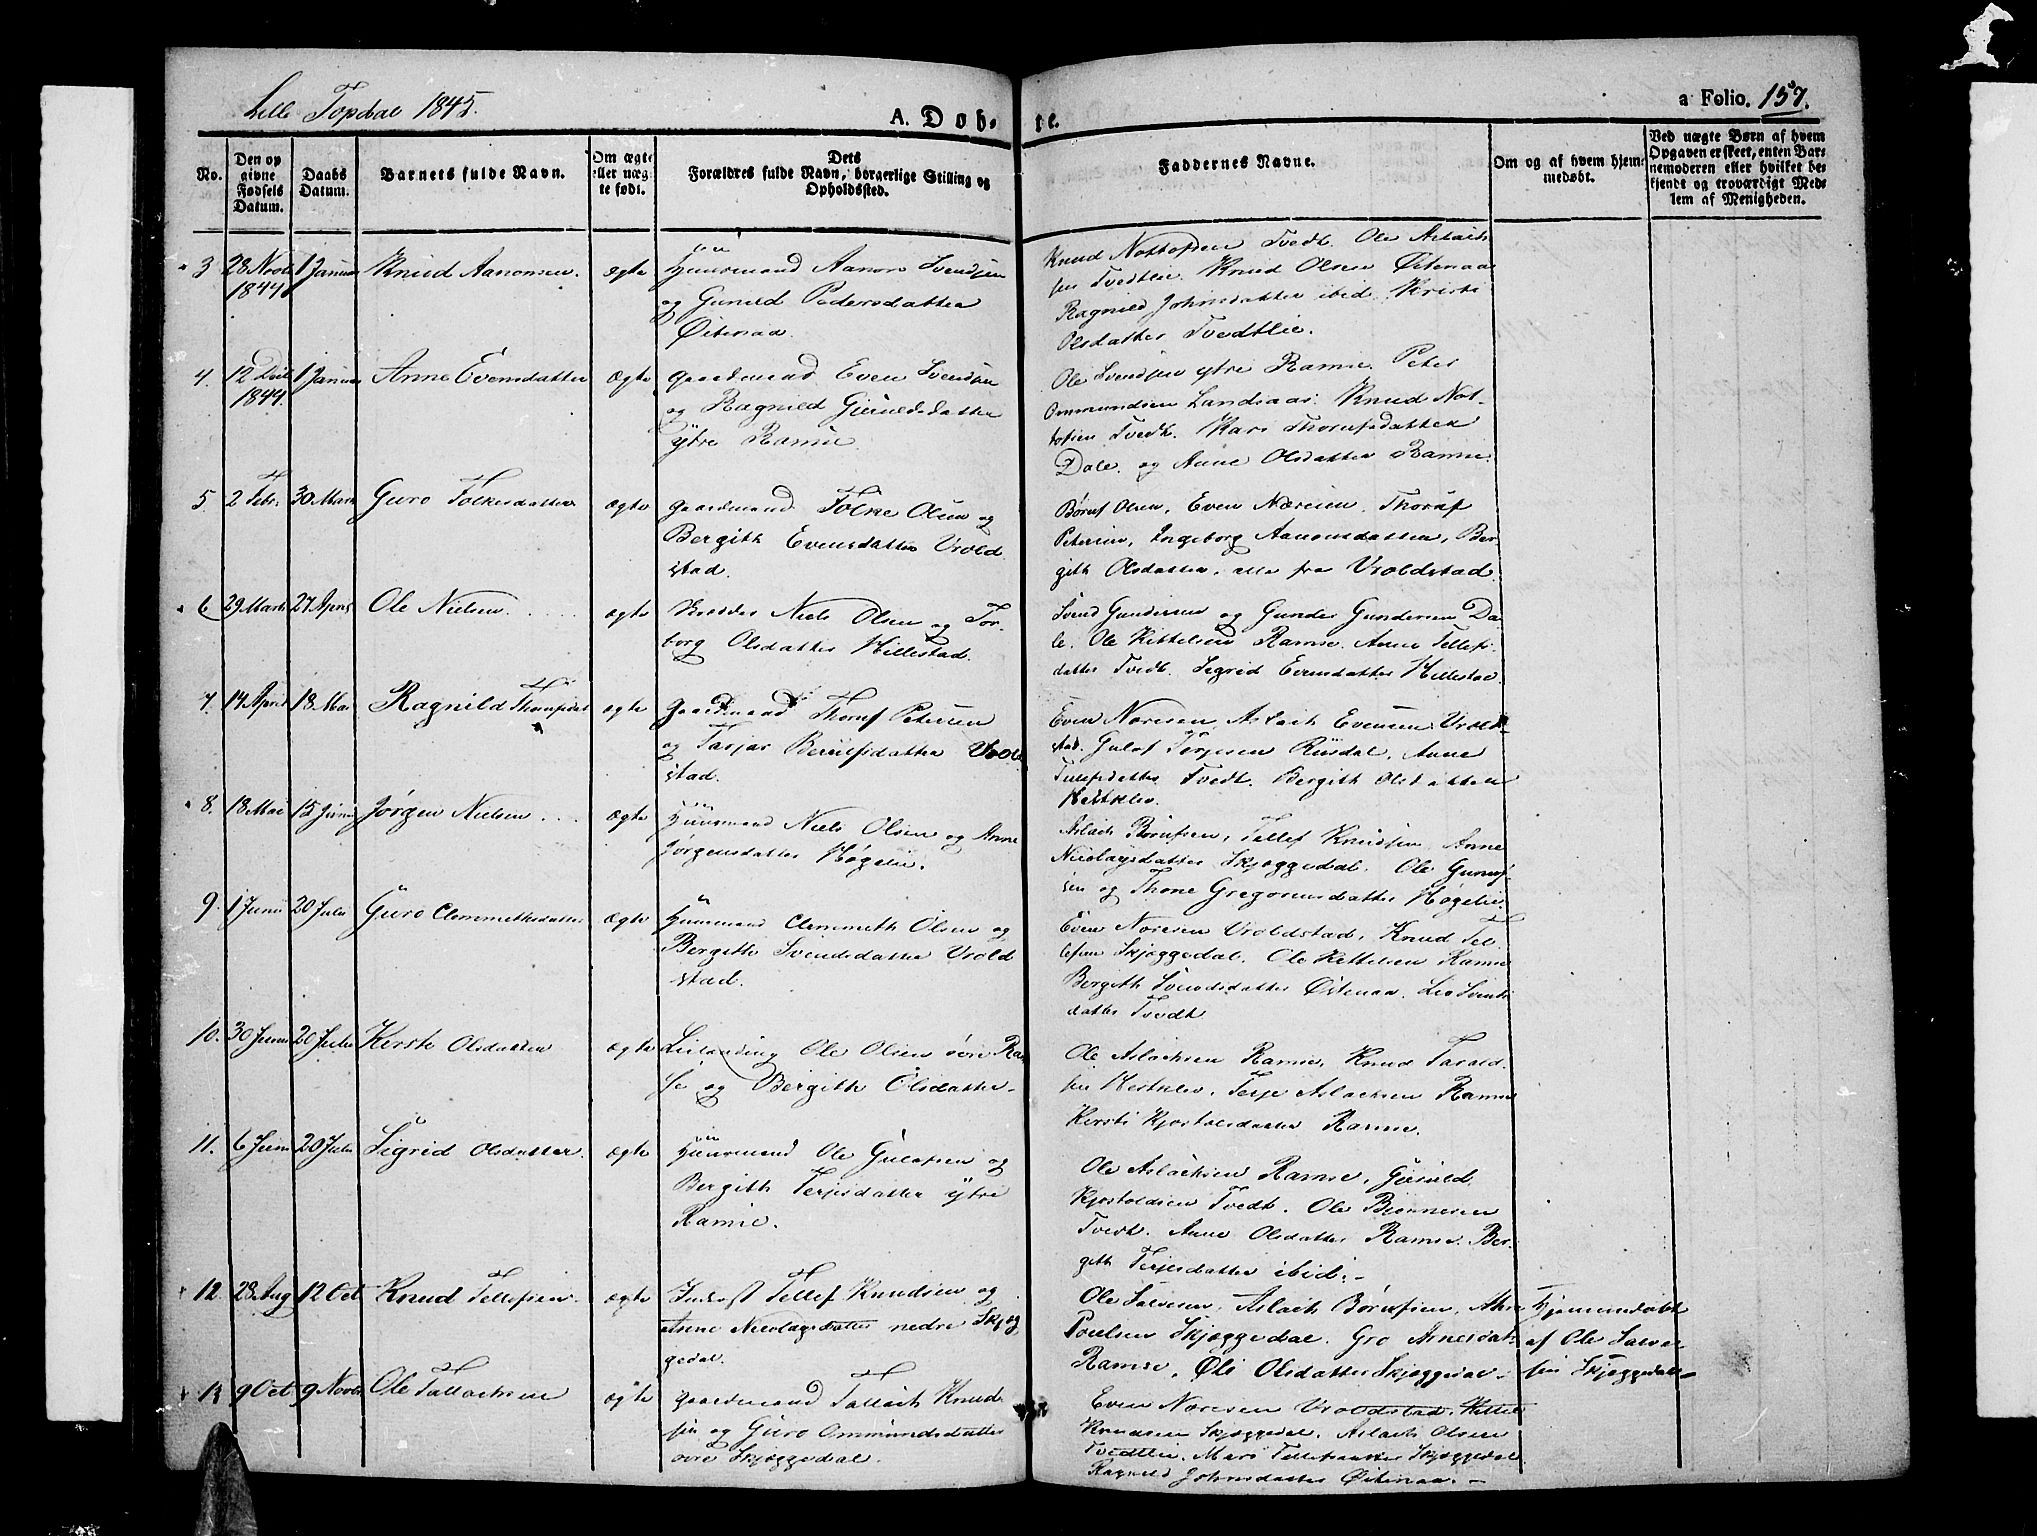 Lille Topdal 1845.
A. Døb-
te.
a Folio. 157.
No.
Den op
givne
Fødsels
Datum.
Daabs
Datum.
Barnets fulde Navn.
Om ægte
eller uæg
te født.
Dets
Forældres fulde Navn, borgerlige Stilling og
Opholdssted.
Faddernes Navne.
Om og af hvem hjem-
medøbt.
Ved uægte Børn af hvem
Opgaven er skeet, enten Bar-
nemoderen eller hvilket be-
kjendt og troværdigt Med-
lem af Menigheden.
3
28 Novb
1844
1 Januar
Knud Aanonsen.
ægte
Huusmand Aanon Svendsen
og Gunild Pedersdatter
Østenaa.
Knud Nottofsen Tvedt. Ole Aslach-
sen Tvedtlie. Knud Olsen Østenaa
Ragnild Johnsdatter ibid. Kirsti
Olsdatter Tvedtlie.
4.
12 Decb
1844.
1 Januar
Anne Evensdatter
ægte
gaardmand Even Svendsen
og Ragnild Gjeruldsdatter
ytre Ramse.
Ole Svendsen ytre Ramse. Peter
Ommundsen Landsaas. Knud Not-
tofsen Tvedt. Kari Thorufsdatter
Dale. og Anne Olsdatter Ramse.
5
2 Feb.
30 Marts
Guro Folkesdatter
ægte
gaardmand Folke Olsen og
Bergith Evensdatter Vrold
stad.
Børuf Olsen, Even Næresen, Thoruf
Petersen, Ingeborg Aanonsdatter, Ber-
gith Olsdatter, alle fra Vroldstad.
6
29 Marts
27 April
Ole Nielsen.
ægte
Niels Olsen og Tor-
borg Olsdatter Hillestad.
Svend Gundersen og Gunder Gundersen Da-
le. Ole Kittelsen Ramse. Anne Tellefs-
datter Tvedt. Sigrid Evensdatter Hillestad.
7.
14 April
18 Mai
Ragnild Thorufsdat
ægte
gaardmand Thoruf Petersen
og Tarjer Børufsdatter Vrold
stad.
Even Noresen Aslach Evensen Vrold-
stad. Gulof Terjesen Riisdal, Anne
Tellefsdatter Tvedt. Bergith Olsdatter
Hestklev.
8.
18 Mai
15 Juni
Jørgen Nielsen
ægte
Huusmand Niels Olsen og Anne
Jørgensdatter Høgelii.
Aslach Børufsen, Tellef Knudsen, Anne
Nicolaysdatter Skjeggedal. Ole Gunuf-
sen og Thone Gregoriusdatter Høgelie.
9.
1 Juni
20 Juli
Guro Clemmethsdatter
ægte
Huusmand Clemmeth Olsen og
Bergith Svendsdatter Vrold
stad.
Even Noresen Vroldstad, Knud Tel-
lefsen Skjeggedal. Ole Kittelsen Ramse
Bergith Svendsdatter Østenaa. Liv Svends
datter Tvedt
10.
30 Juni
20 Juli
Kersti Olsdatter
ægte
Leilænding Ole Olsen øvre Ram
se og Bergith Olsdatter
Ole Aslachsen Ramse, Knud Tarald-
sen Hestklev. Terje Aslachsen Ramse
Kersti Kjostolsdatter Ramse.
11.
6 Juni
20 Juli
Sigrid Olsdatter.
ægte
Huusmand Ole Gulofsen og
Bergith Terjesdatter ytre
Ramse.
Ole Aslachsen Ramse, Gjeruld
Kjostoldsen Tvedt. Ole Bjønnesen
Tvedt. Anne Olsdatter Ramse. Ber-
gith Terjesdatter ibid.-
12
28 Aug
12 Oct
Knud Tellefsen
ægte
Inderst Tellef Knudsen og
Anne Nicolaysdatter nedre Skjeg
gedal.
Ole Salvesen, Aslach Børufsen, Anne
Poulsen Skjeggedal. Gro Arnesdat-
Ramse, Øli Olsdatter Skjeggedal-
Hjemmedøbt
af Ole Salve-
sen Skjeggedal-
13
9 Oct
9 Novb
Ole Tallachsen
ægte
gaardmand Tallach Knud-
sen og Guro Ommundsdatter
øvre Skjeggedal.
Even Noresen Vroldstad, Kittel
Knudsen Skjeggedal, Aslach Olsen
Tvedtlie. Mari Tellefsdatter Skjeggedal
Ragnild Johnsdatter Østenaa.-